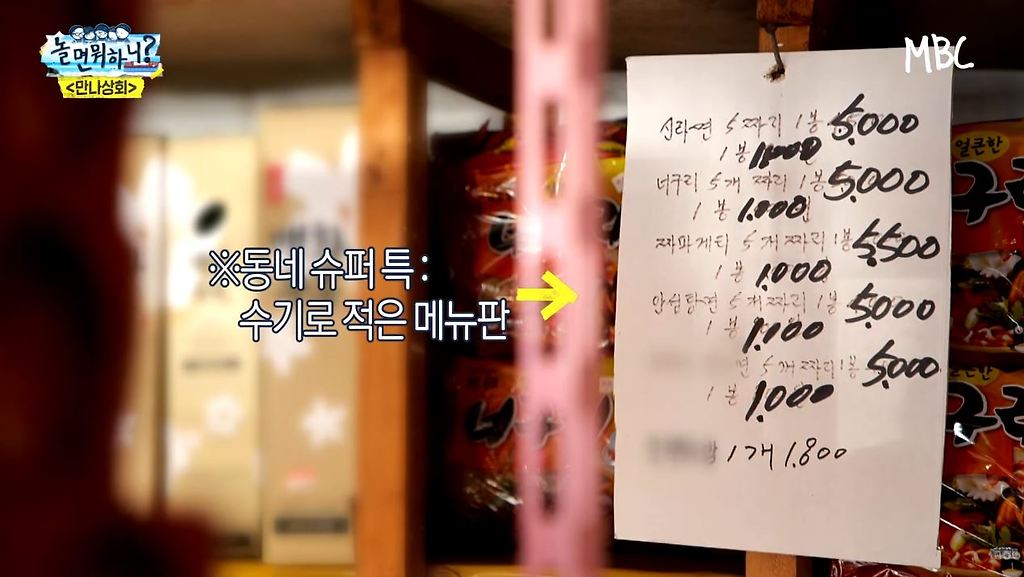 놀면뭐하니?
<만나상회>
MBC
※동네 슈퍼 특 :
수기로 적은 메뉴판
신라면 5짜리 1봉 5,000
1봉
너구리 5개 짜리 1봉 5,000
1봉 1.000
짜파게티 5개짜리 1봉 5,500
1봉 1,000
안성탕면 5개짜리 1봉 5,000
1봉 1,100
면 5개짜리 1봉 5,000
1봉 1,000
1개 1.800
얼큰한
구리
너구리
얼큰한
구리